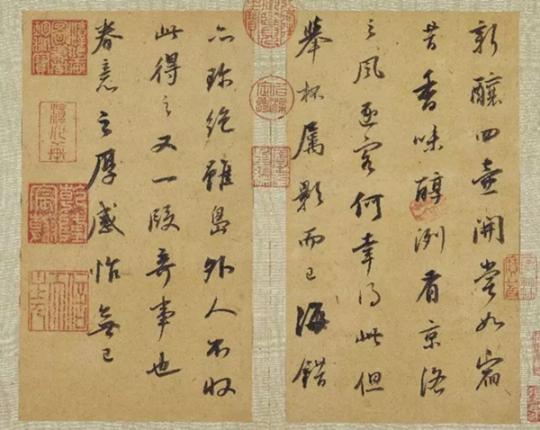 新釀四壺開嘗如宿
昔香味醇洌有京洛
之風逐客何幸得此但
舉杯属影而已海錯
亦珍絕雖島外人不收
此得之又一段奇事也
眷意之厚感怍無已